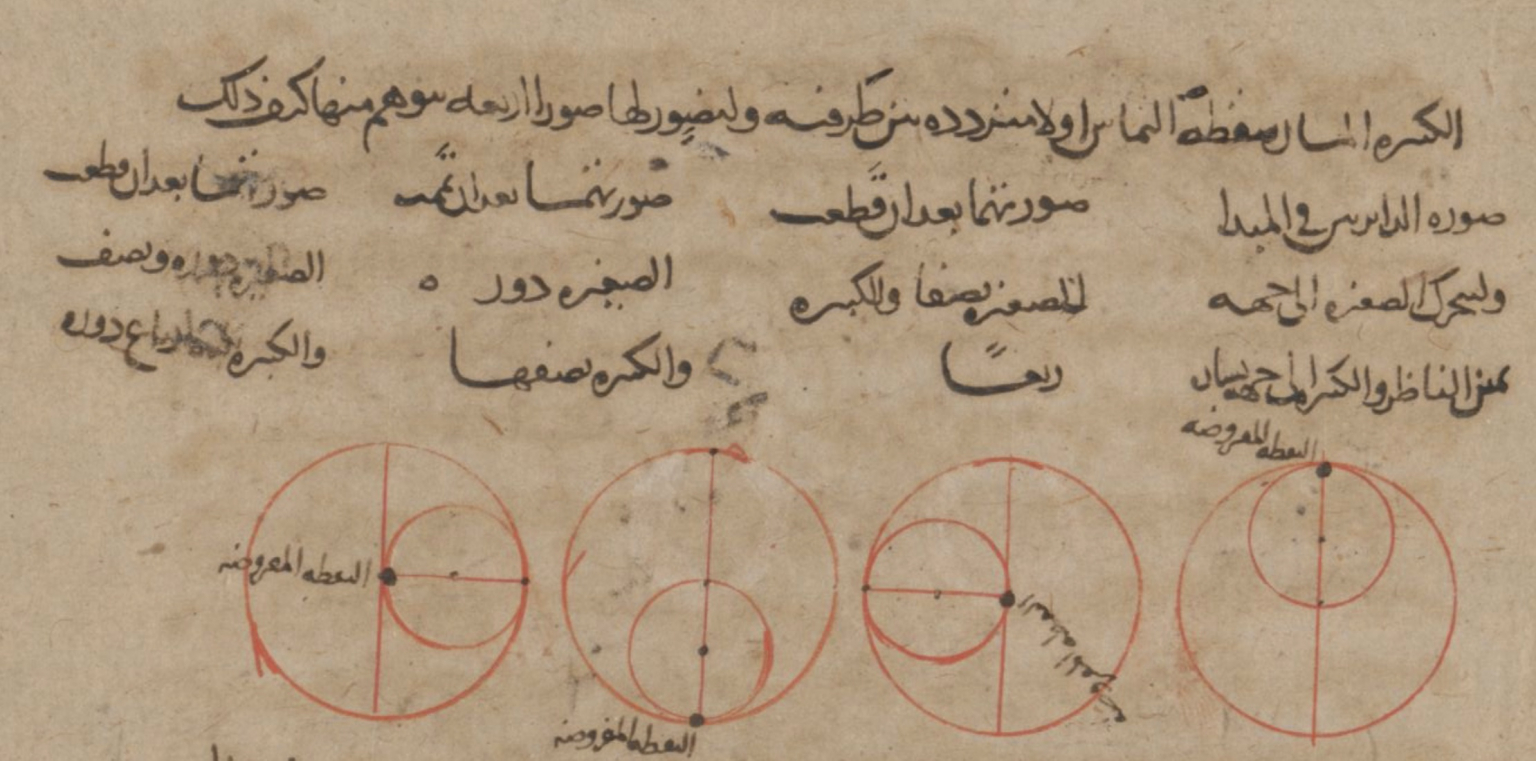 الكبيرة المار بنقطة التماس اولا مترددة بين طرفيه ولنصور لها صورا اربعة يتوهم منها كيف ذلك
صورة الدائرتين في المبدا
وليتحرك الصغيرة الى جهة
يمين الناظر والكبيرة الى جهة يساره
صورتهما بعد ان قطعت
الصغيرة نصفا والكبيرة
ربعًا
صورتهما بعد ان تممت
الصغيرة دورة
والكبيرة نصفها
صورتهما بعد ان قطعت
الصغيرة دورة ونصف
والكبيرة ارباع دورة
النقطة المفروضة
النقطة المفروضة
النقطة المفروضة
النقطة المفروضة